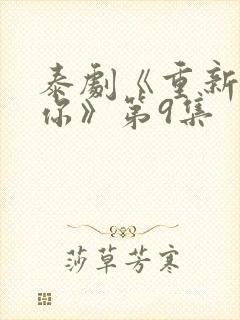 泰剧《重新
你》第9集
莎草芳寒